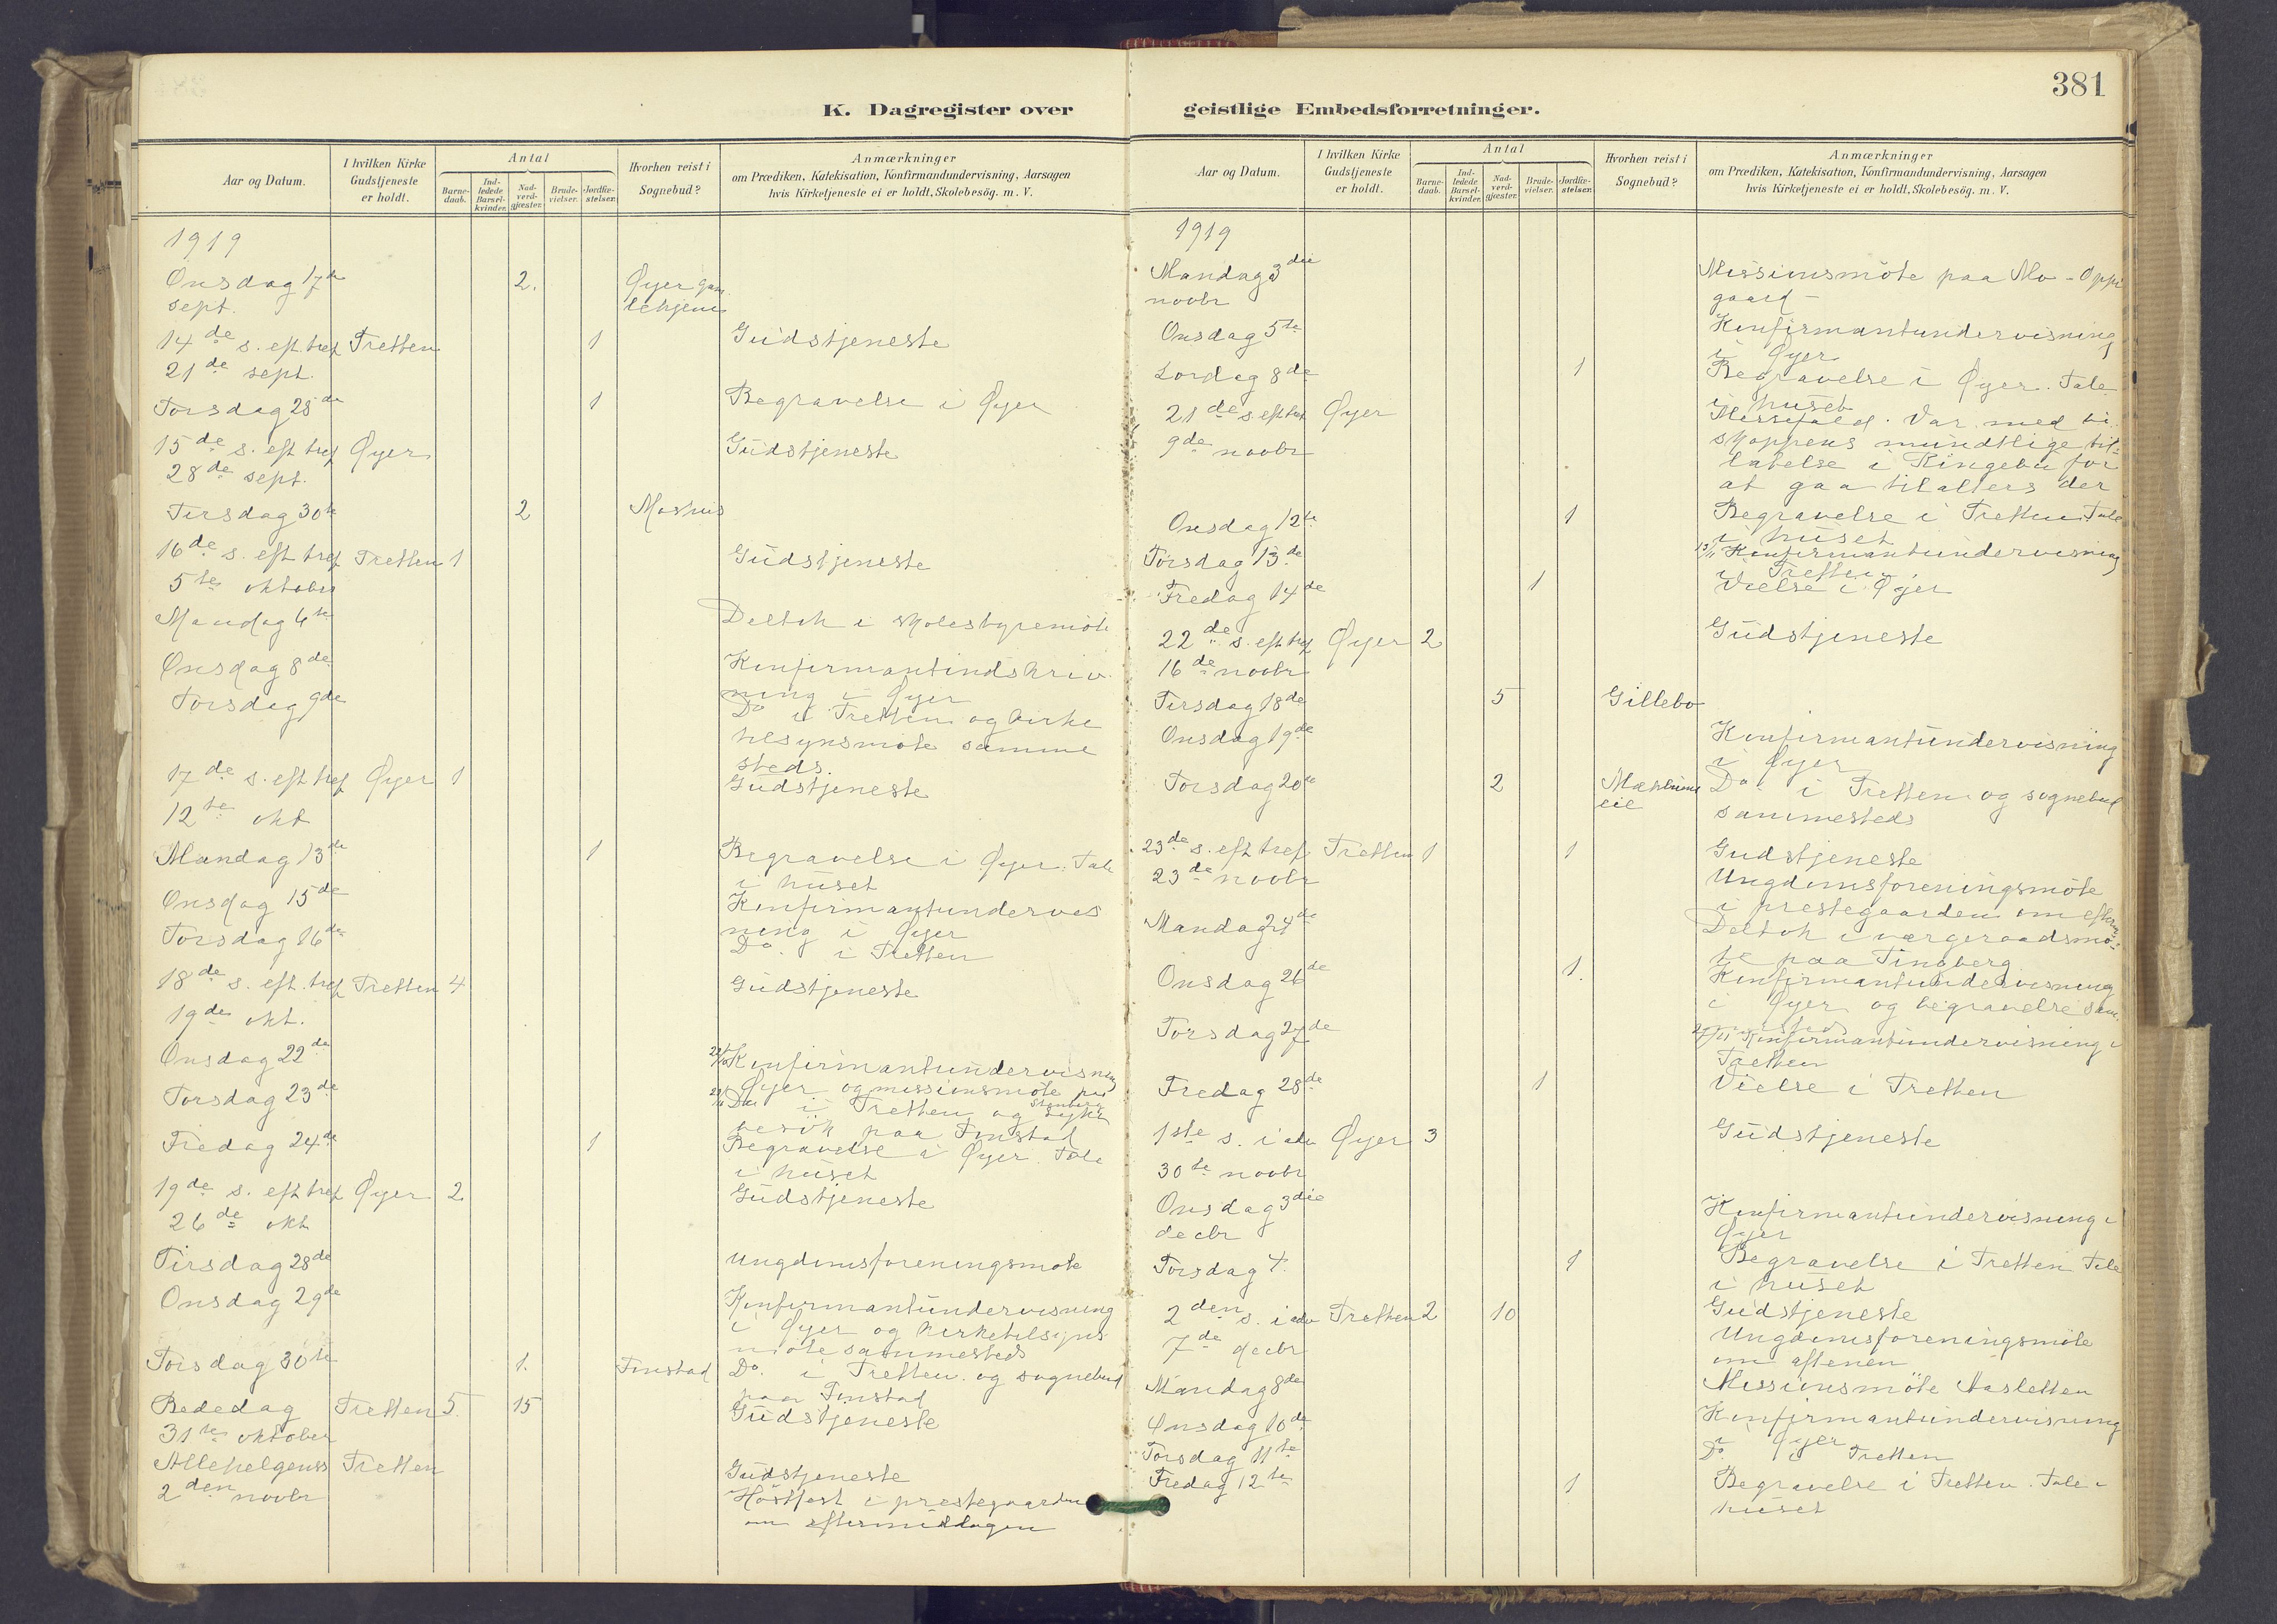 381
K. Dagregister over geistlige Embedsforretninger.
Aar og Datum.
I hvilken Kirke
Gudstjeneste
er holdt.
Antal
Barne-
daab.
Ind-
ledede
Barsel-
kvinder.
Nad-
verd-
gjæster.
Brude-
vielser.
Jordfæ-
stelser.
Hvorhen reist i
Sognebud?
Anmærkninger
om Prædiken, Katekisation, Konfirmandundervisning, Aarsagen
hvis Kirketjeneste ei er holdt, Skolebesøg. m. V.
1919
Onsdag 17de 2. Øyer gam
sept. lehjem
14de s. eft. tref Tretten 1 Gudstjeneste
21de sept.
Torsdag 25de 1 Begravelse i Øyer
15de s. eft tref Øyer Gudstjeneste
28de sept.
Tirsdag 30te 2 Moshus
16de s. eft tref Tretten 1 Gudstjeneste
5te oktober
Mandag 6te Deltok i skolestyremöte
Onsdag 8de Konfirmantindskriv
ning i Øyer
Torsdag 9de Do i Tretten og kirke
tilsynsmöte samme
steds.
17de s. eft tref Øyer 1 Gudstjeneste
12te okt
Mandag 13de 1 Begravelse i Øyer. Tale
i huset
Onsdag 15de Konfirmantundervis
ning i Øyer
Torsdag 16de Do. i Tretten
18de s. eft. tref Tretten 4 Gudstjeneste
19de okt.
Onsdag 22de 22/10 Konfirmantundervisning
Øyer og missionsmöte paa
Stenberg
Torsdag 23de 23/10 Do i Tretten og syke
besök paa Finstad
Fredag 24de 1 Begravelse i Øyer. Tale
i huset
19de s. eft tref Øyer 2 Gudstjeneste
26de okt
Tirsdag 28de Ungdomsforeningsmöte
Onsdag 29de Konfirmantundervisning
i Øyer og kirketilsyns
möte sammesteds
Torsdag 30te 1. Finstad Do. i Tretten og sognebud
paa Finstad
Bededag Tretten 5. 15 Gudstjeneste
31te oktober
Allehelgenss Tretten Gudstjeneste
2den novbr Höstfest i prestegaarden
om eftermiddagen
Aar og Datum.
I hvilken Kirke
Gudstjeneste
er holdt.
Antal
Barne-
daab.
Ind-
ledede
Barsel-
kvinder.
Nad-
verd-
gjæster.
Brude-
vielser.
Jordfæ-
stelser.
Hvorhen reist i
Sognebud?
Anmærkninger
om Prædiken, Katekisation, Konfirmandundervisning, Aarsagen
hvis Kirketjeneste ei er holdt, Skolebesøg. m. V.
1919
Mandag 3die Missionsmöte paa Mo - Opp
novbr gaard -
Onsdag 5te Konfirmantundervisning
i Øyer
Lördag 8de 1 Begravelse i Øyer. Tale
i huset
21de s eft tref Øyer Messefald. Var med bi
9de novbr skoppens mundtlige til-
latelse i Ringebu for
at gaa tilalters der
Onsdag 12te 1 Begravelse i Tretten Tale
i huset
Torsdag 13de 13/11 Konfirmantundervisning
i Tretten
Fredag 14de 1 Vielse i Øyer
22de s. eft tref Øyer 2 Gudstjeneste
16de novbr
Tirsdag 18de 5 Gillebo
Onsdag 19de Konfirmantundervisning
i Øyer
Torsdag 20de 2 Mæhlums Do. i Tretten og sognebud
eie sammesteds
23de s. eft tref Tretten 1 1 Gudstjeneste
23de novbr Ungdomsforeningsmöte
i prestegaarden om efterm.
Mandag 24de Deltok i værgeraadsmö-
te paa Tingberg
Onsdag 26de 1. Konfirmantundervisning
i Øyer og begravelse sam.
mesteds
Torsdag 27de 27/11 Konfirmantundervisning i
Tretten
Fredag 28de 1 Vielse i Tretten
1ste s. i adv Øyer 3 Gudstjeneste
30te novbr
Onsdag 3die Konfirmantundervisning i
decbr Øyer
Torsdag 4. 1 Begravelse i Tretten Tale
i huset
2den s. i adv Tretten 2 10 Gudstjeneste
7de decbr Ungdomsforeningsmöte
om aftenen
Mandag 8de Missionsmöte Aasletten
Onsdag 10de Konfirmantundervisning
i Øyer
Torsdag 11te Do i Tretten
Fredag 12te 1 Begravelse i Tretten. Tale i
huset